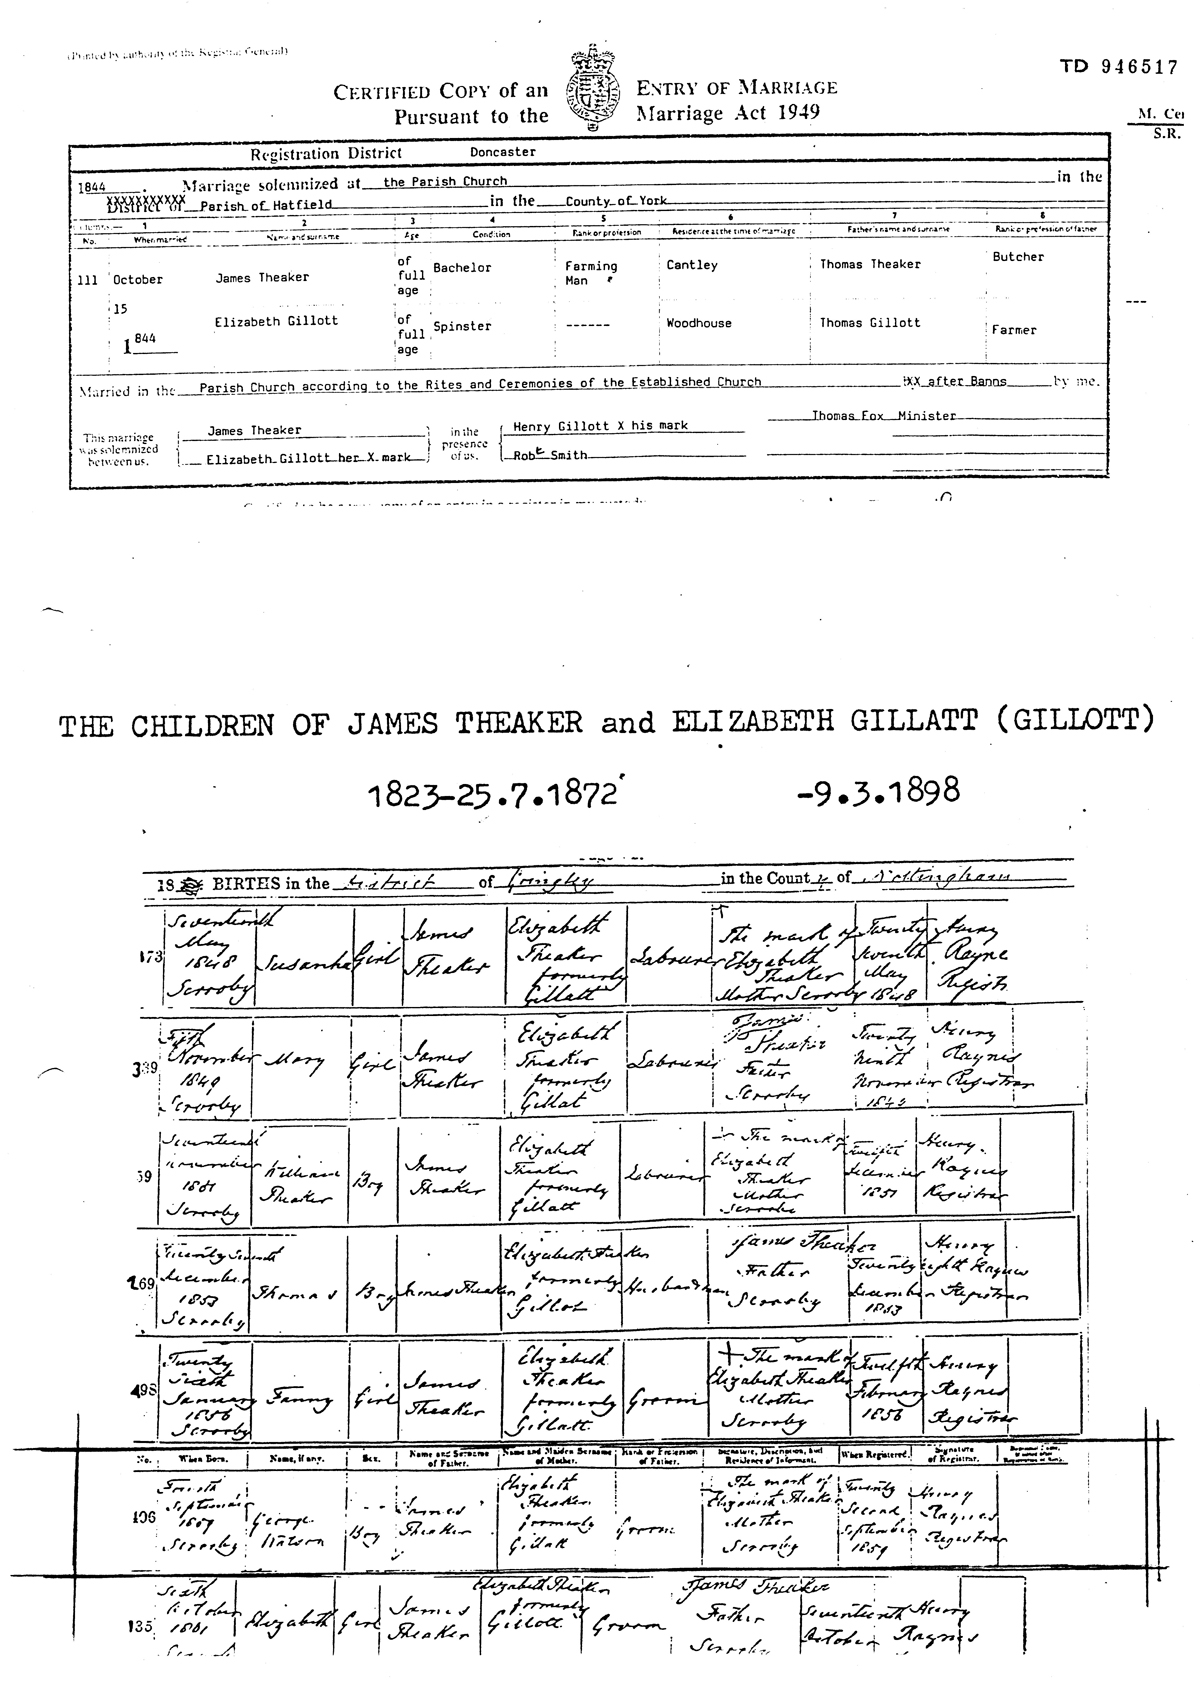 (Printed by authority of the Registrar General)
TD 946517
CERTIFIED COPY of an ENTRY OF MARRIAGE
Pursuant to the Marriage Act 1949
M. Cer
S.R.
Registration District Doncaster
1844 . Marriage solemnized at the Parish Church in the
XXXXXXXXXX
District of Parish of Hatfield in the County of York
Columns:— 1 2 3 4 5 6 7 8
No. When married Name and surname Age Condition Rank or profession Residence at the time of marriage Father's name and surname Rank or profession of father
111 October 15 1844 James Theaker of full age Bachelor Farming Man Cantley Thomas Theaker Butcher
Elizabeth Gillott of full age Spinster ------ Woodhouse Thomas Gillott Farmer
Married in the Parish Church according to the Rites and Ceremonies of the Established Church XX after Banns by me.
Thomas Fox Minister
This marriage was solemnized between us,
James Theaker
Elizabeth Gillott her X mark
in the presence of us,
Henry Gillott X his mark
Robt Smith
THE CHILDREN OF JAMES THEAKER and ELIZABETH GILLATT (GILLOTT)
1823-25.7.1872 -9.3.1898
18 BIRTHS in the District of Gringley in the County of Nottingham
173 Seventeenth May 1848 Scrooby Susanha Girl James Theaker Elizabeth Theaker formerly Gillatt Labourer The mark of Elizabeth Theaker Mother Scrooby Twenty Seventh May 1848 Henry Rayne Registr
339 Fifth November 1849 Scrooby Mary Girl James Theaker Elizabeth Theaker formerly Gillat Labourer James Theaker Father Scrooby Twenty ninth November Henry Raynes Registrar
59 Seventeenth November 1851 Scrooby William Theaker Boy James Theaker Elizabeth Theaker formerly Gillatt Labourer The mark of Elizabeth Theaker Mother Scrooby Twelfth December 1851 Henry Raynes Registrar
269 Twenty Seventh December 1853 Scrooby Thomas Boy James Theaker Elizabeth Theaker formerly Gillot Husbandman James Theaker Father Scrooby Twenty eighth December 1853 Henry Raynes Registrar
498 Twenty Sixth January 1856 Scrooby Fanny Girl James Theaker Elizabeth Theaker formerly Gillatt Groom The mark of Elizabeth Theaker Mother Scrooby Twelfth February 1856 Henry Raynes Registrar
No. When Born. Name, if any. Sex. Name and Surname of Father. Name and Maiden Surname of Mother. Rank or Profession of Father. Signature, Description, and Residence of Informant. When Registered. Signature of Registrar.
196 Fourth September 1859 Scrooby George Watson Boy James Theaker Elizabeth Theaker formerly Gillatt Groom The mark of Elizabeth Theaker Mother Scrooby Twenty Second September 1859 Henry Raynes Registrar
135 Sixth October 1861 Elizabeth Girl James Theaker Elizabeth Theaker formerly Gillott Groom James Theaker Father Scrooby Seventeenth October Henry Raynes